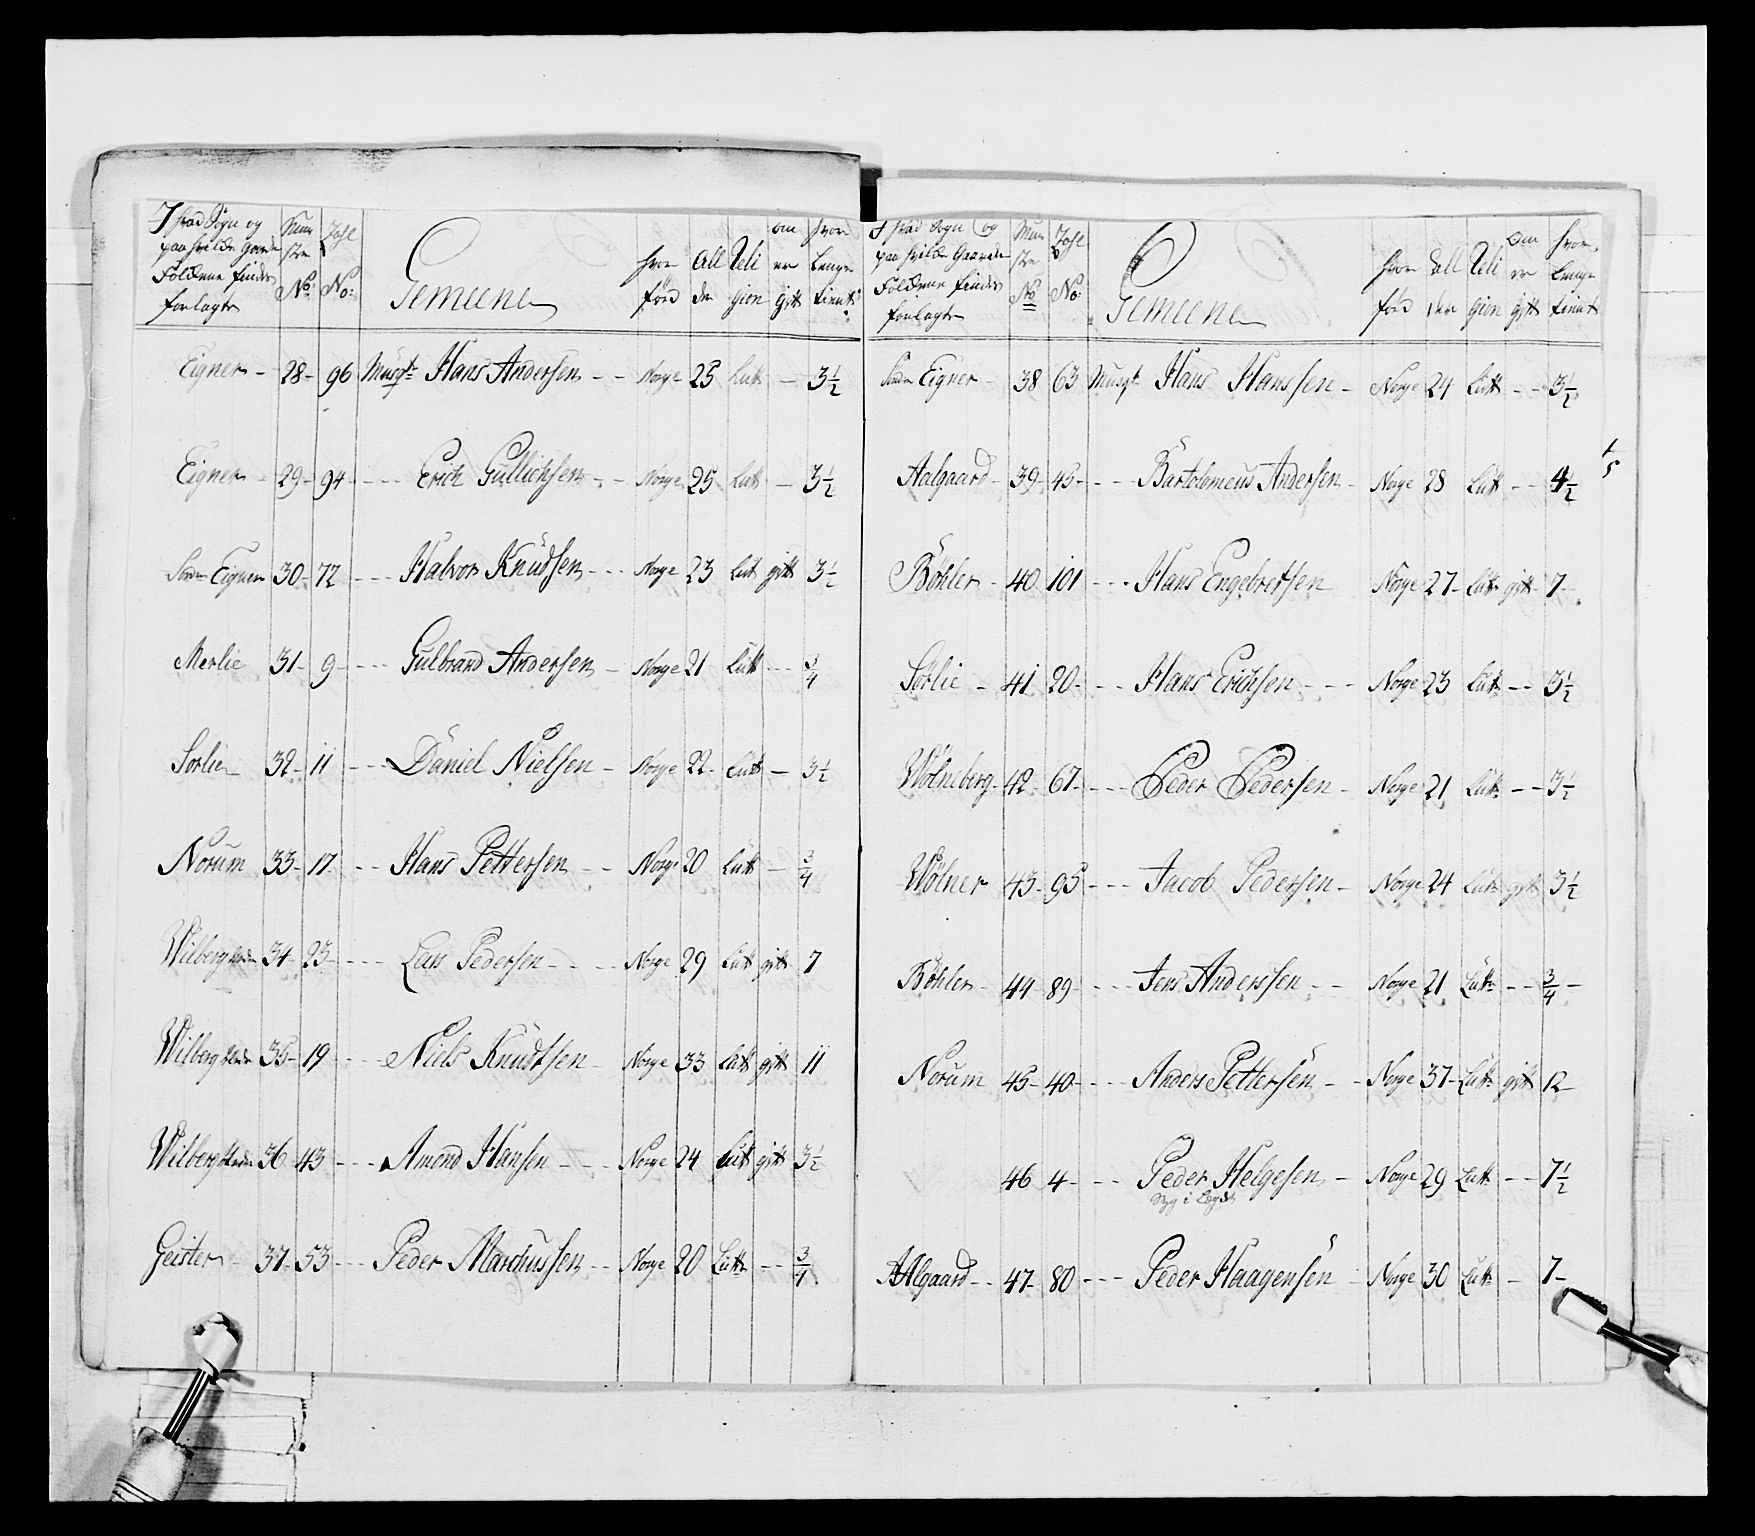 I hvad Sogn og
paa hvilke Gaarde
Foldene findes
forlagte
Mun
stre
No:
No:
Gemeene
hvor
föed
All
der
Reli
gion
om
er
gift
hvor
Lenge
tient
Eigner - 28 - 96 Musqt: Hans Andersen - - Norge 25 Lutt - 3 1/2
Eigner - 29 - 94 - - - Erich Gullichsen - - Norge 25 Lutt - 3 1/2
Eigner 30 - 72 - - - Halvor Knudsen - - - Norge 23 Lut gift 3 1/2
Merlie 31 - 9 - - - - Gulbrand Andersen - Norge 21 Lutt - - - 3/4
Sorlie 32 - 11 - - - Daniel Nielsen - Norge 22 - Lutt - 3 1/2
Norum 33 - 17 - - Hans Pettersen - - Norge 20 Lutt - 3/4
Wilberg 34 - 23 - - - - Lars Pedersen - - - Norge 29 Lutt gift 7
Wilberg 35 - 19 - - - - Niels Knudtsen - Norge 33 Lutt gift 11
Wilberg 36 43 - - - Amond Hansen - - - Norge 24 Lutt gift 3 1/2
Geister 37 - 53 - - - Peder Marchussen - - Norge 20 Lutt - - 3/4
I hvad Sogn og
paa hvilke Gaarde
Foldene findes
forlagte
Mun
stre
No
No:
Gemeene
hvor
föed
all
der
Reli
gion
om
er
gift
hvor
Lenge
tient
Eigner - 38 63 Musqt Hans Hanssen - Norge 24 Lutt - - 3 1/2
Aalgaard - 39 - 45 - - - - Bartolomeus Andersen - Norge 28 Lutt - - 4 1/2
Böhler - 40 101 - - - Hans Engebretsen Norge 27 - Lutt gift 7 -
Sörlie - 41 20 - - - Hans Erichsen - - - Norge 23 Lutt - - 3 1/2
Wölneberg - 42 - 67 - - - - Peder Pedersen - Norge 21 Lutt - - 3 1/2
Wölner 43 - 95 - - - Jacob Pedersen - Norge 24 Lutt gift 3 1/2
Böhler - 44 - 89 - - - Jens Anderssen - - Norge 21 Lutt - - 3/4 -
Norum 45 - 40 - - - - Anders Pettersen - - Norge 37 - Lutt gift 12 -
46 4 - - - Peder Helgesen - Norge 29 Lutt - - 7 1/2
Syg i Legd
Aalgaard - - 47 - 80 - - - Peder Haagensen - Norge 30 Lutt - 7 -